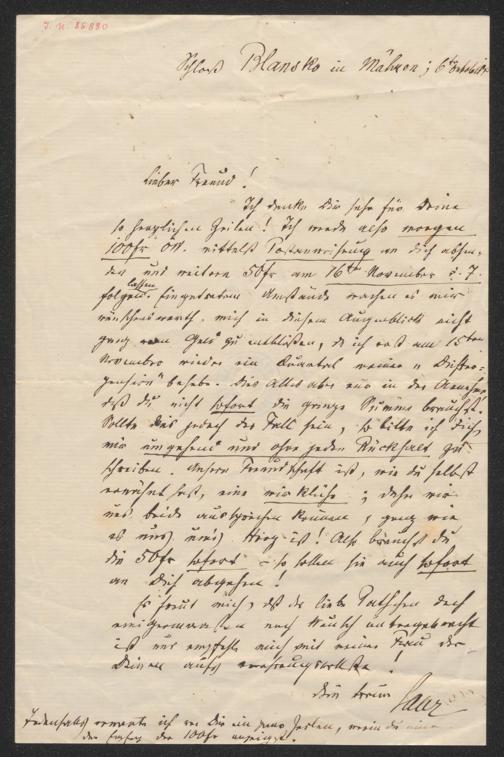 J. N. 85880
Schloß Blansko in Mähren; 6ten
Lieber Freund!
Ich danke Dir sehr für Deine
so herzlichen Zeilen! Ich werde also morgen
100fr ÖW. mittelst Postanweisung an dich absen-
den und weitere 50fr am 16ten November d. J.
folgen lassen. Eingetretene Umstände machen es mir
wünschenswerth, mich in diesem Augenblick nicht
ganz vom Geld zu entblößen, da ich erst am 15ten
November wieder ein Quartal meiner "Dichter-
pension" behebe. Dies Alles aber nur in der Annahme
daß du nicht sofort die ganze Summe brauchst.
Sollte dies jedoch der Fall sein, so bitte ich Dich,
mir umgehend und ohne jeden Rückhalt zu
schreiben. Unsere Freundschaft ist, wie du selbst
erwähnt hast, eine wirkliche; daher wir
uns beide aussprechen können, ganz wie
es uns ist! Also brauchst du
die 50fr sofort – so sollen sie auch sofort
an Dich abgehen!
Es freut mich, daß der liebe Pathchen doch
einigermaßen nach Wunsch untergebracht
ist und empfehle mich mit meiner Frau der
Deinen aufs verehrungsvollste!
Dein treuer Saar
Jedenfalls erwarte ich von Dir ein paar Zeilen, worin du mir
den Empfang der 100fr anzeigst.